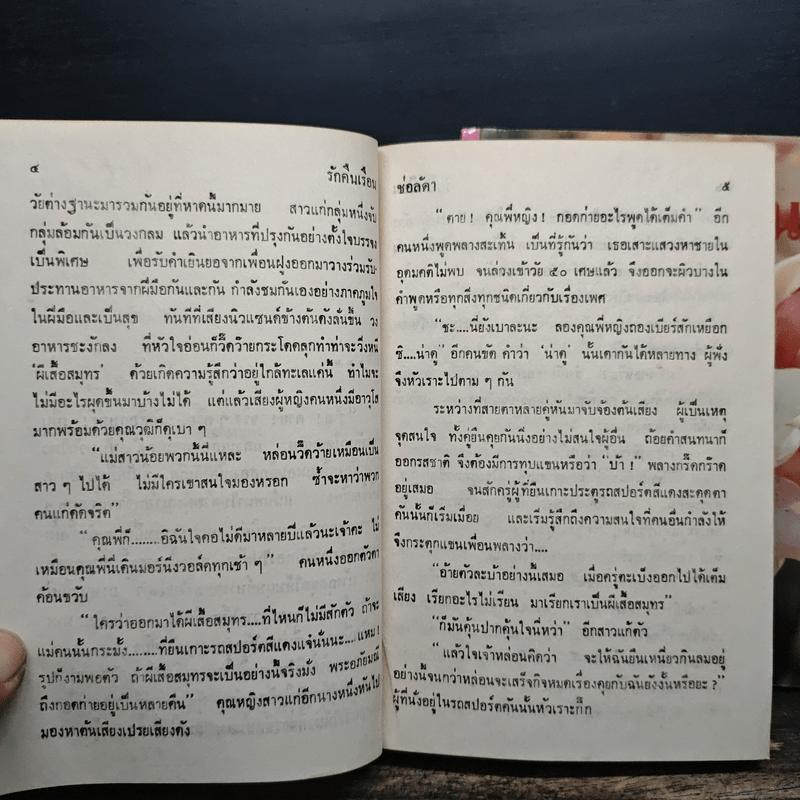 ๔
รักคืนเรือน
วัยต่างฐานะมารวมกันอยู่ที่หาดนี้มากมาย สาวแก่กลุ่มหนึ่งจับ
กลุ่มล้อมกันเป็นวงกลม แล้วนำอาหารที่ปรุงกันอย่างตั้งใจบรรจง
เป็นพิเศษ เพื่อรับคำเยินยอจากเพื่อนฝูงออกมาวางร่วมรับ-
ประทานอาหารจากฝีมือกันและกัน กำลังชมกันเองอย่างภาคภูมิใจ
ในฝีมือและเป็นสุข ทันทีที่เสียงนิวแซนด์ข้างต้นดังลั่นขึ้น วง
อาหารชะงักลง ที่หัวใจอ่อนก็วี๊ดว๊ายกระโดดลุกทำท่าจะวิ่งหนี
'ผีเสื้อสมุทร' ด้วยเกิดความรู้สึกว่าอยู่ใกล้ทะเลแค่นี้ ทำไมจะ
ไม่มีอะไรผุดขึ้นมาบ้างไม่ได้ แต่แล้วเสียงผู้หญิงคนหนึ่งมีอาวุโส
มากพร้อมด้วยคุณวุฒิก็ดุเบา ๆ
“แม่สาวน้อยพวกนี้นี่แหละ หล่อนวี๊ดว้ายเหมือนเป็น
สาว ๆ ไปได้ ไม่มีใครเขาสนใจมองหรอก ซ้ำจะหาว่าพวก
คนแก่ดัดจริต”
“คุณพี่ก็........อิฉันใจคอไม่ดีมาหลายปีแล้วนะเจ้าคะ ไม่
เหมือนคุณพี่นี่เดินมอร์นิ่งวอล์คทุกเช้า ๆ” คนหนึ่งออกตัวตา
ค้อนขวับ
“ใครว่าออกมาได้ผีเสื้อสมุทร....ที่ไหนก็ไม่มีสักตัว ถ้าจะ
แม่คนนั้นกระมั้ง........ที่ยืนเกาะรถสปอร์ตสีแดงแจ๋นั่นนะ....แหม!
รูปก็งามพอตัว ถ้าผีเสื้อสมุทรจะเป็นอย่างนี้จริงมั่ง พระอภัยมณี
ถึงกอดก่ายอยู่เป็นหลายคืน” คุณหญิงสาวแก่อีกนางหนึ่งหันไป
มองหาต้นเสียงเปรยเสียงดัง
ช่อลัดา
๕
“ตาย! คุณพี่หญิง! กอดก่ายอะไรพูดได้เต็มคำ” อีก
คนหนึ่งพูดพลางสะเทิ้น เป็นที่รู้กันว่า เธอเสาะแสวงหาชายใน
อุดมคติไม่พบ จนล่วงเข้าวัย ๕๐ เศษแล้ว จึงออกจะผิวบางใน
คำพูดหรือทุกสิ่งทุกชนิดเกี่ยวกับเรื่องเพศ
“ชะ....นี่ยังเบาละนะ ลองคุณพี่หญิงถองเบียร์สักเหยือก
ซิ....น่าดู” อีกคนขัด คำว่า 'น่าดู' นั้นเดากันได้หลายทาง ผู้ฟัง
จึงหัวเราะไปตาม ๆ กัน
ระหว่างที่สายตาหลายคู่หันมาจับจ้องต้นเสียง ผู้เป็นเหตุ
จุดสนใจ ทั้งคู่ยืนคุยกันนิ่งอย่างไม่สนใจผู้อื่น ถ้อยคำสนทนาก็
ออกรสชาติ จึงต้องมีการทุบแขนหรือว่า 'บ้า!' พลางกรี๊ดกร๊าด
อยู่เสมอ จนสักครู่ผู้ที่ยืนเกาะประตูรถสปอร์ตสีแดงสะดุดตา
คันนั้นก็เริ่มเมื่อย และเริ่มรู้สึกถึงความสนใจที่คนอื่นกำลังให้
จึงกระตุกแขนเพื่อนพลางว่า....
“อ้ายตัวละบ้าอย่างนี้เสมอ เมื่อครู่ตะเบ็งออกไปได้เต็ม
เสียง เรียกอะไรไม่เรียน มาเรียกเราเป็นผีเสื้อสมุทร”
“ก็มันคุ้นปากคุ้นใจนี่หว่า” อีกสาวแก้ตัว
“แล้วใจเจ้าหล่อนคิดว่า จะให้ฉันยืนเหนี่ยวกินลมอยู่
อย่างนี้จนกว่าหล่อนจะเสร็จกิจหมดเรื่องคุยกับฉันยังงั้นหรือยะ?”
ผู้ที่นั่งอยู่ในรถสปอร์ตคันนั้นหัวเราะกิ๊ก